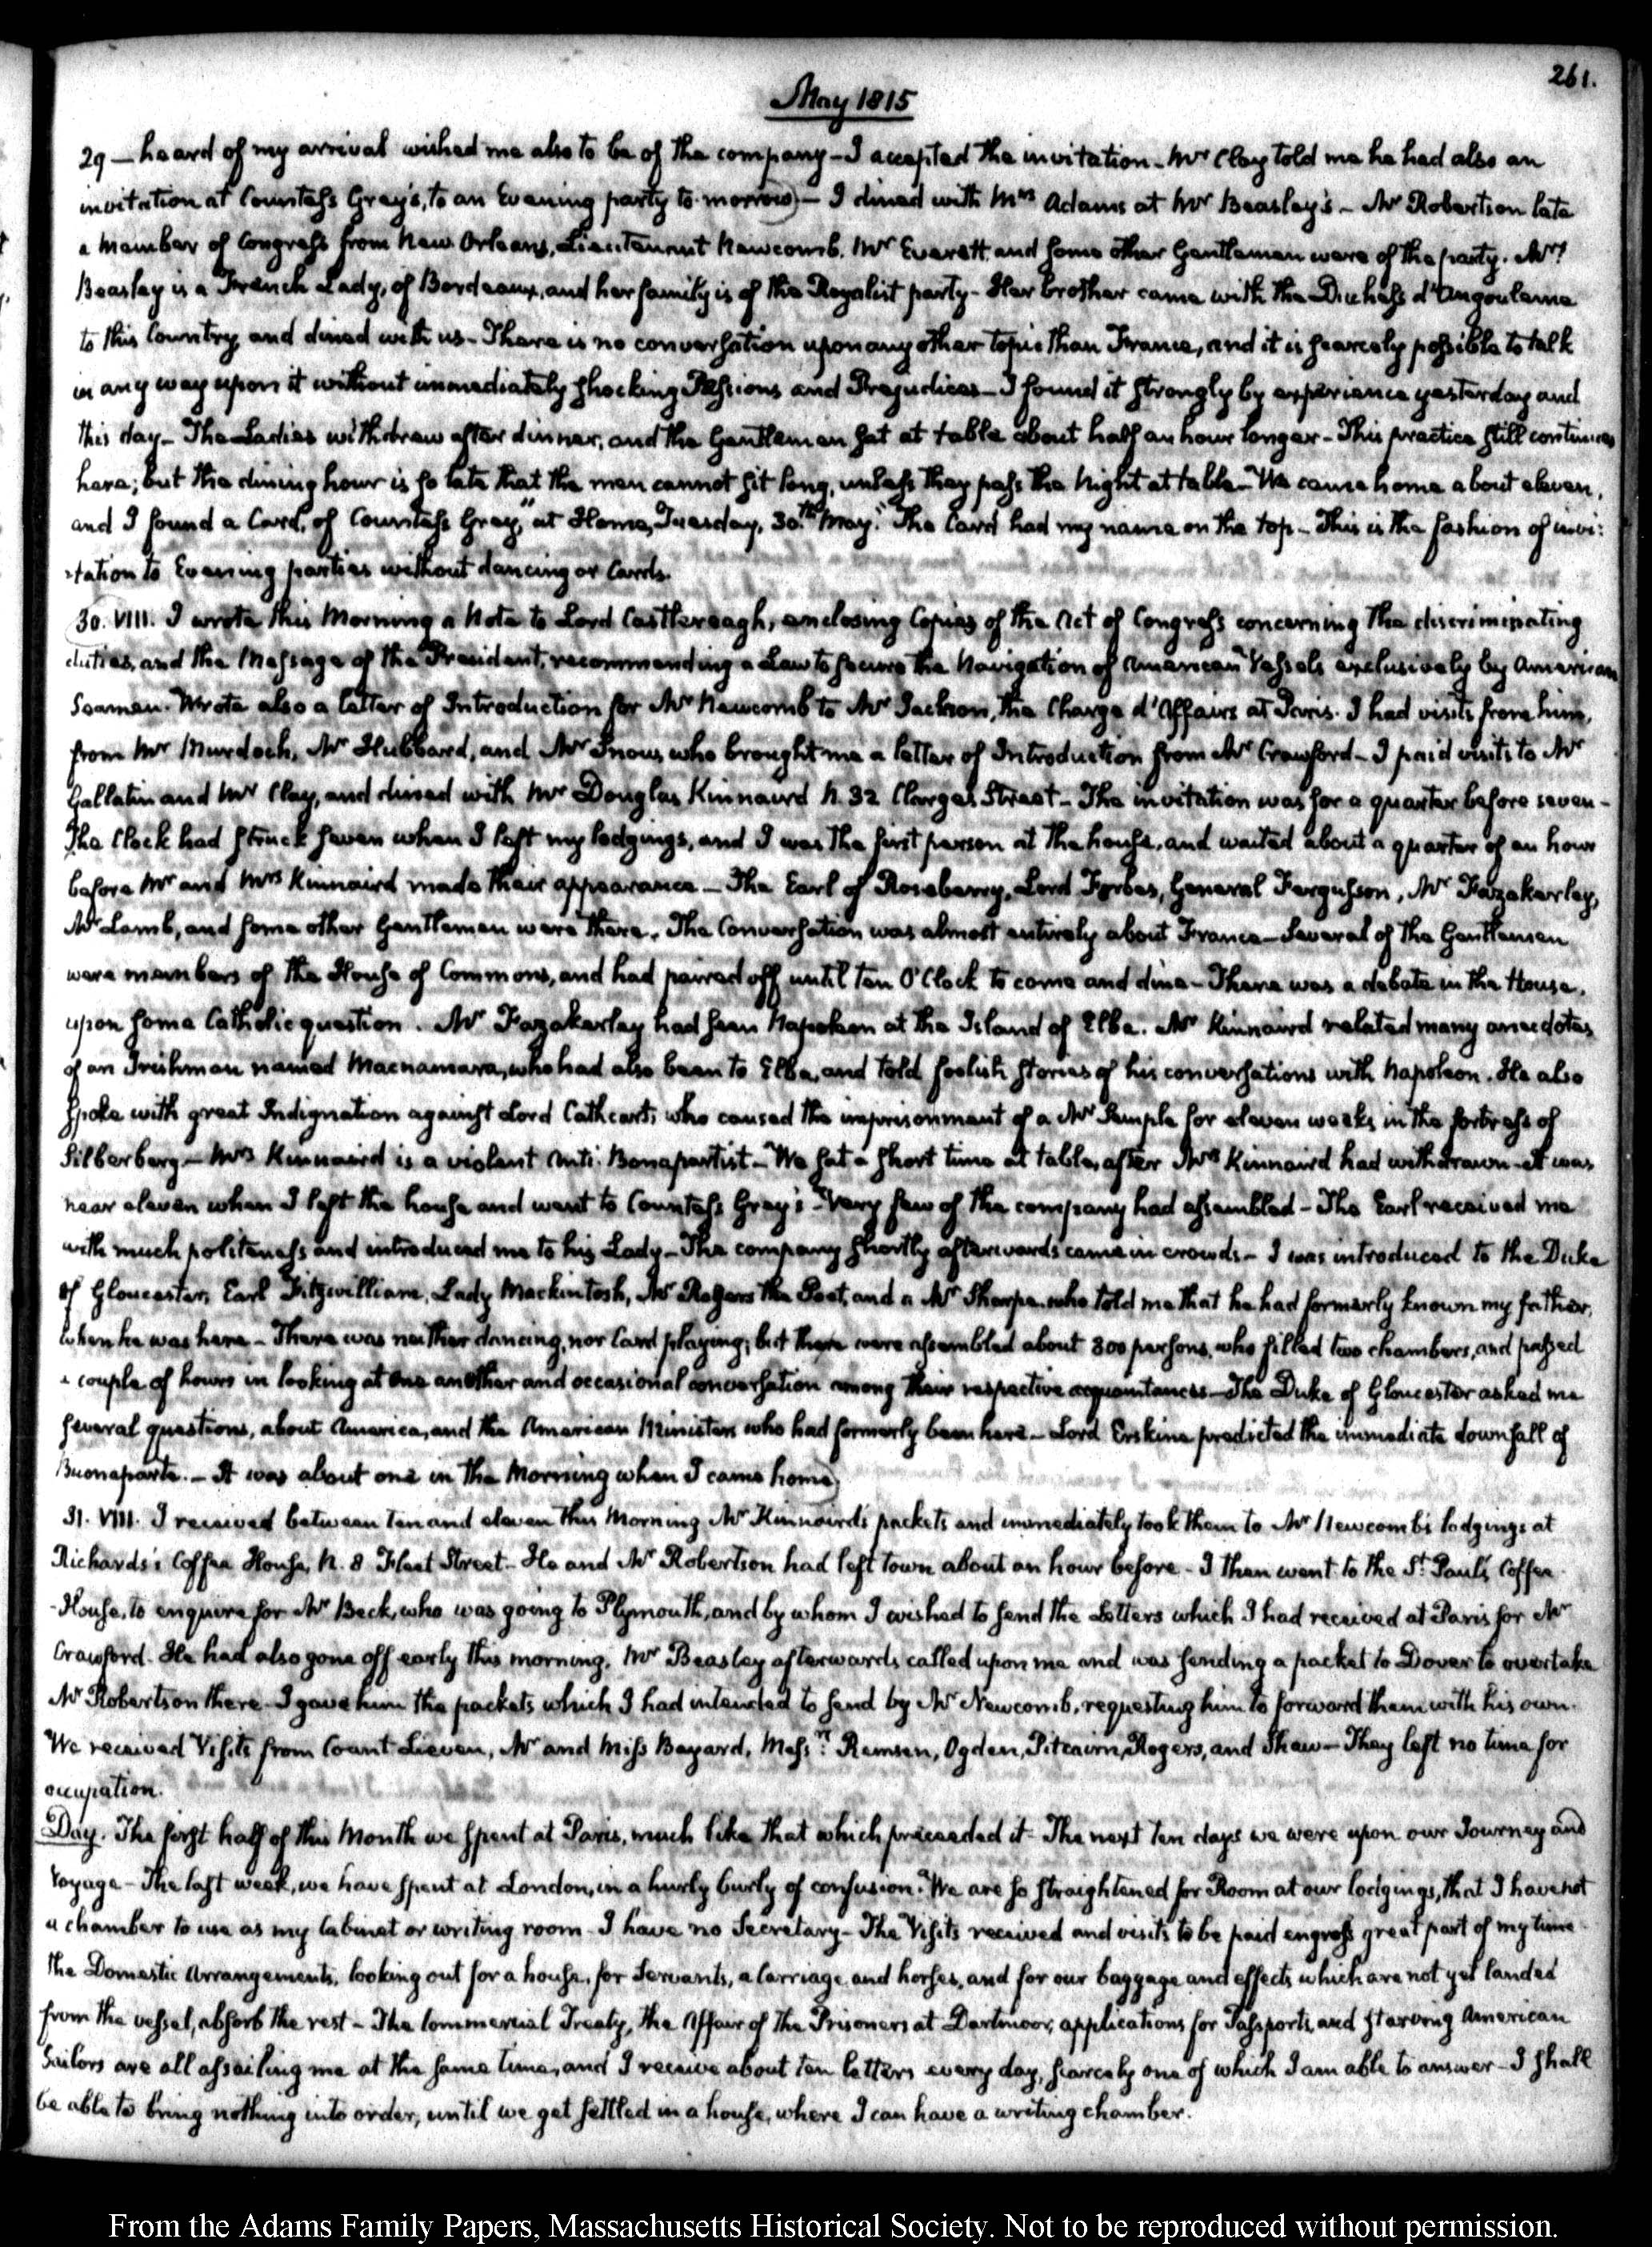 261.
May 1815
29 — heard of my arrival wished me also to be of the company - I accepted the invitation - Mr Clay told me he had also an
invitation at Countess Grey's, to an Evening party to-morrow) - I dined with Mrs Adams at Mr Beasley's - Mr Robertson late
a member of Congress from New Orleans, Lieutenant Newcomb, Mr Everett and some other Gentlemen were of the party. Mrs
Beasley is a French Lady, of Bordeaux, and her family is of the Royalist party - Her brother came with the Duchess d'Angouleme
to this Country and dined with us - There is no conversation upon any other topic than France, and it is scarcely possible to talk
in any way upon it without immediately shocking Passions and Prejudices - I found it strongly by experience yesterday and
this day - The Ladies withdrew after dinner, and the Gentlemen sat at table about half an hour longer - This practice still continues
here; but the dining hour is so late that the men cannot sit long, unless they pass the Night at table - We came home about eleven,
and I found a Card, of Countess Grey, "at Home, Tuesday, 30th May." The Card had my name on the top - This is the fashion of invi:
-tation to Evening parties without dancing or Cards.
30. VIII. I wrote this Morning a Note to Lord Castlereagh, enclosing Copies of the Act of Congress concerning the discriminating
duties, and the Message of the President, recommending a Law to secure the Navigation of American Vessels exclusively by American
Seamen. Wrote also a letter of Introduction for Mr Newcomb to Mr Jackson, the Charge d'Affairs at Paris. I had visits from him,
from Mr Murdoch, Mr Hubbard, and Mr Snow, who brought me a letter of Introduction from Mr Crawford - I paid visits to Mr
Gallatin and Mr Clay, and dined with Mr Douglas Kinnaird N. 32 Clarges Street - The invitation was for a quarter before seven -
The Clock had struck seven when I left my lodgings, and I was the first person at the house, and waited about a quarter of an hour
before Mr and Mrs Kinnaird made their appearance - The Earl of Roseberry, Lord Forbes, General Fergusson, Mr Fazakerley,
Mr Lamb, and some other Gentlemen were there. The Conversation was almost entirely about France - Several of the Gentlemen
were members of the House of Commons, and had paired off until ten O'Clock to come and dine - There was a debate in the House,
upon some Catholic question. Mr Fazakerley had seen Napoleon at the Island of Elba. Mr Kinnaird related many anecdotes
of an Irishman named Macnamara, who had also been to Elba, and told foolish stories of his conversations with Napoleon. He also
spoke with great Indignation against Lord Cathcart, who caused the imprisonment of a Mr Semple for eleven weeks in the fortress of
Silberberg - Mrs Kinnaird is a violent Anti-Bonapartist - We sat a short time at table, after Mrs Kinnaird had withdrawn - It was
near eleven when I left the house and went to Countess Grey's - Very few of the company had assembled - The Earl received me
with much politeness and introduced me to his Lady - The company shortly afterwards came in crowds - I was introduced to the Duke
of Gloucester, Earl Fitzwilliam, Lady Mackintosh, Mr Rogers the Poet, and a Mr Sharpe who told me that he had formerly known my father,
when he was here - There was neither dancing, nor Card playing; but there were assembled about 300 persons, who filled two chambers, and passed
a couple of hours in looking at one another and occasional conversation among their respective acquaintances - The Duke of Gloucester asked me
several questions, about America, and the American Ministers who had formerly been here - Lord Erskine predicted the immediate downfall of
Buonaparte. - It was about one in the Morning when I came home)
31. VIII. I received between ten and eleven this Morning Mr Kinnaird's packets and immediately took them to Mr Newcomb's lodgings at
Richards's Coffee House, N. 8 Fleet Street - He and Mr Robertson had left town about an hour before - I then went to the St. Paul's Coffee-
-House, to enquire for Mr Beck, who was going to Plymouth, and by whom I wished to send the Letters which I had received at Paris for Mr
Crawford. He had also gone off early this morning. Mr Beasley afterwards called upon me and was sending a packet to Dover to overtake
Mr Robertson there - I gave him the packets which I had intended to send by Mr Newcomb, requesting him to forward them with his own.
We received Visits from Count Lieven, Mr and Miss Bayard, Messrs. Remsen, Ogden, Pitcairn, Rogers, and Shaw - They left no time for
occupation.
Day. The first half of this Month we spent at Paris, much like that which preceeded it - The next ten days we were upon our Journey and
Voyage - The last week, we have spent at London, in a hurly burly of confusion. We are so straightened for Room at our lodgings, that I have not
a chamber to use as my Cabinet or writing room - I have no Secretary - The Visits received and visits to be paid engross great part of my time -
the Domestic Arrangements, looking out for a house, for Servants, a Carriage and horses, and for our baggage and effects which are not yet landed
from the vessel, absorb the rest - The Commercial Treaty, the Affair of the Prisoners at Dartmoor, applications for Passports, and starving American
Sailors are all assailing me at the same time, and I receive about ten letters every day, scarcely one of which I am able to answer - I shall
be able to bring nothing into order, until we get settled in a house, where I can have a writing chamber.
From the Adams Family Papers, Massachusetts Historical Society. Not to be reproduced without permission.